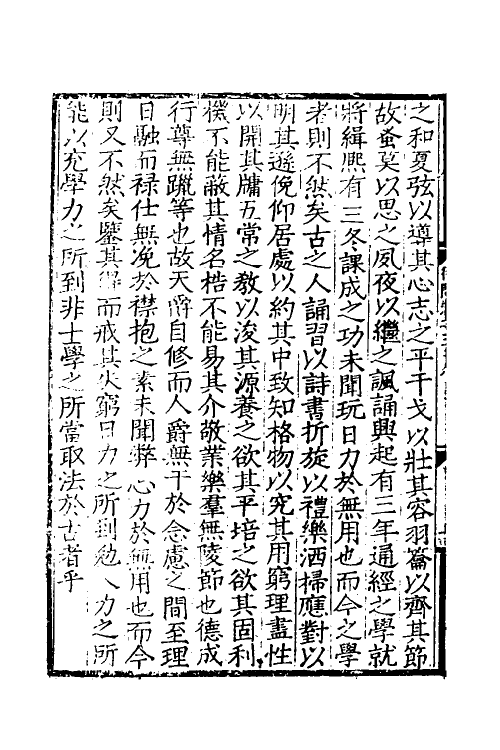 之和夏弦以導其心志之平干戈以壯其容羽籥以齊其節
故蚤莫以思之夙夜以繼之諷誦興起有三年通經之學就
將緝熙有三冬課成之功未聞玩日力於無用也而今之學
者則不然矣古之人誦習以詩書折旋以禮樂洒掃應對以
明其遜俛仰居處以約其中致知格物以究其用窮理盡性
以開其牖五常之教以浚其源養之欲其平培之欲其固利
機不能蔽其情名梏不能易其介敬業樂羣無陵節也德成
行尊無躐等也故天爵自修而人爵無干於念慮之間至理
日融而祿仕無凂於襟抱之素未聞弊心力於無用也而今
則又不然矣鑒其得而戒其失窮日力之所到勉人力之所
能以充學力之所到非士學之所當取法於古者乎